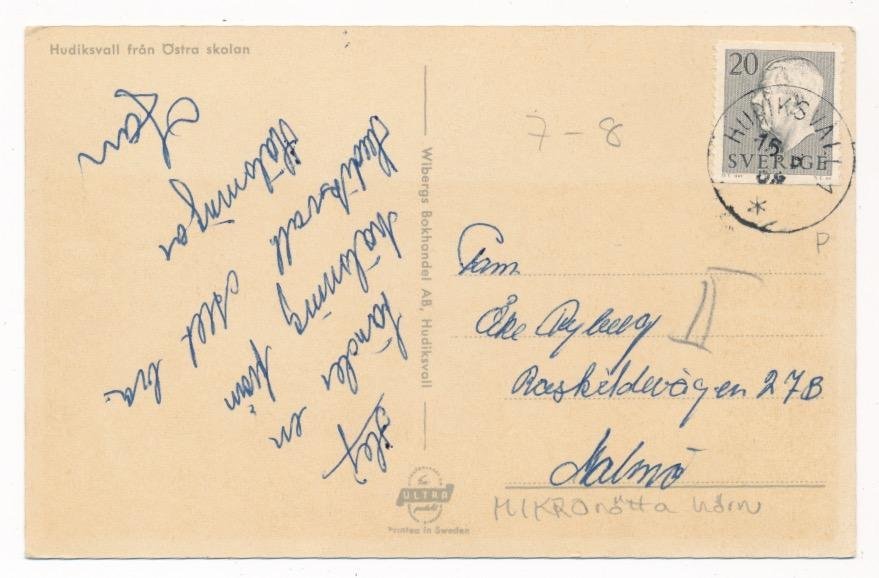 Hudiksvall från Östra skolan
Hej
Sänder en
hälsning från
Hudiksvall.
Allt bra.
Hälsningar
Wibergs Bokhandel AB, Hudiksvall
ULTRA
Printed in Sweden
7-8
20
SVERIGE
HUDIKSVALL 1
15
P
Fam
Åke Ryberg
II
Roskildevägen 27B
Malmö
MIKRO nötta hörn